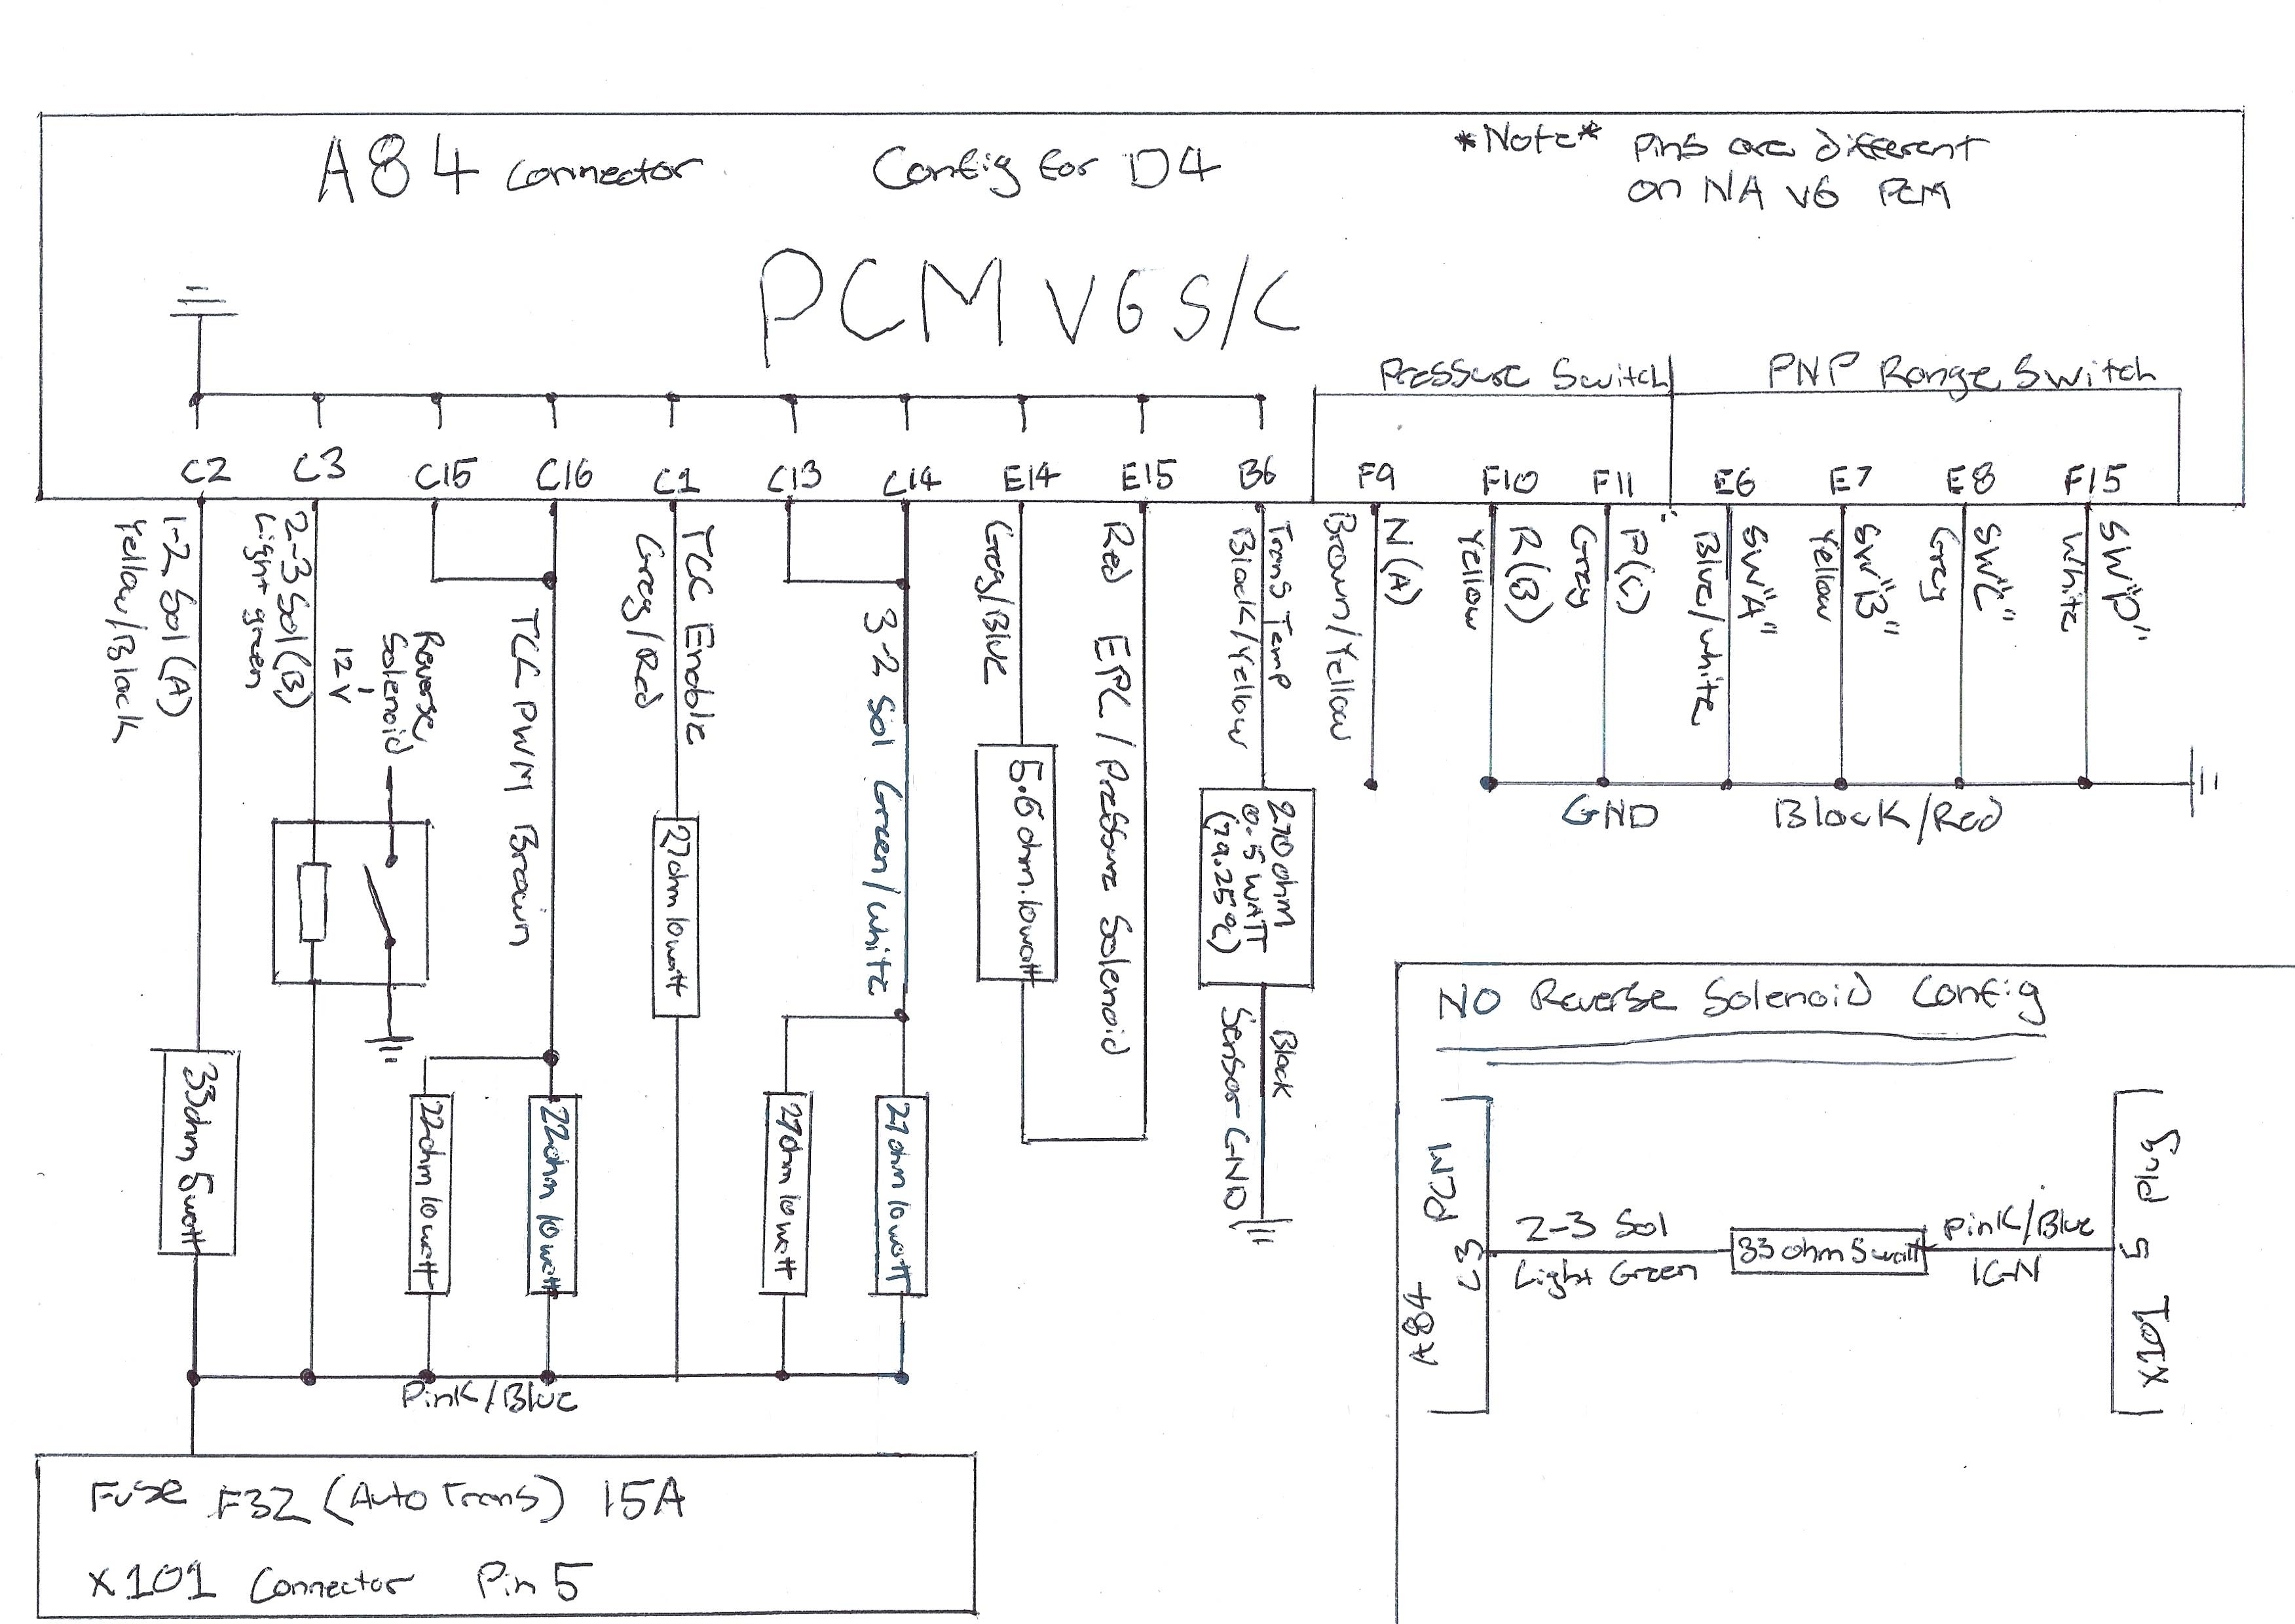 A84 connector
Config for D4
*Note* Pins are different
on NA V6 PCM
PCM V6 S/C
Pressure Switch
PNP Range Switch
C2
C3
C15
C16
C1
C13
C14
E14
E15
B6
F9
F10
F11
E6
E7
E8
F15
1-2 Sol (A)
Yellow/Black
2-3 Sol (B)
Light green
12V
Reverse
Solenoid
TCC PWM Brown
TCC Enable
Grey/Red
3-2 Sol Green/White
Grey/Blue
Red EPC/Pressure Solenoid
Trans Temp
Black/Yellow
N(A)
Brown/Yellow
R(B)
Yellow
P(C)
Grey
SW"A"
Blue/white
SW"B"
Yellow
SW"C"
Grey
SW"P"
White
GND
Black/Red
33ohm 5watt
22ohm 10watt
22ohm 10watt
27ohm 10watt
27ohm 10watt
27ohm 10watt
5.6ohm.10watt
270ohm
0.5 WATT
Black
Sensor GND
Pink/Blue
Fuse F32 (Auto Trans) 15A
X101 Connector Pin 5
NO Reverse Solenoid Config
A84 PCM
C3
2-3 Sol
Light Green
33 ohm 5watt
Pink/Blue
IGN
X101 5 Plug